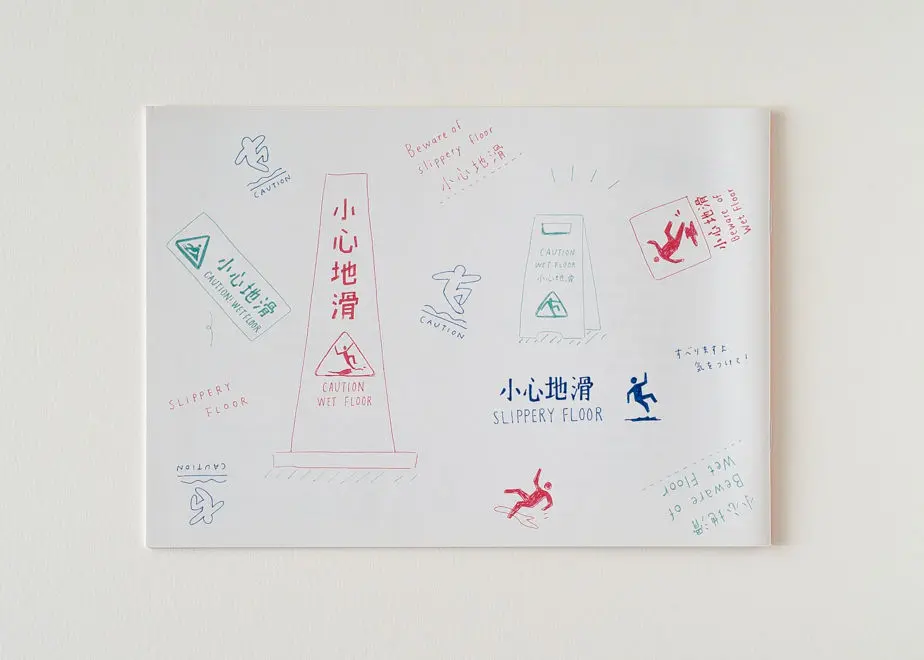 CAUTION
Beware of
slippery floor
小心地滑
小心地滑
CAUTION WET FLOOR
小心地滑
CAUTION
WET FLOOR
CAUTION
CAUTION
WET FLOOR
小心地滑
小心地滑
Beware of
Wet Floor
すべりますよ
気をつけて!
SLIPPERY
FLOOR
小心地滑
SLIPPERY FLOOR
CAUTION
小心地滑
Beware of
Wet Floor